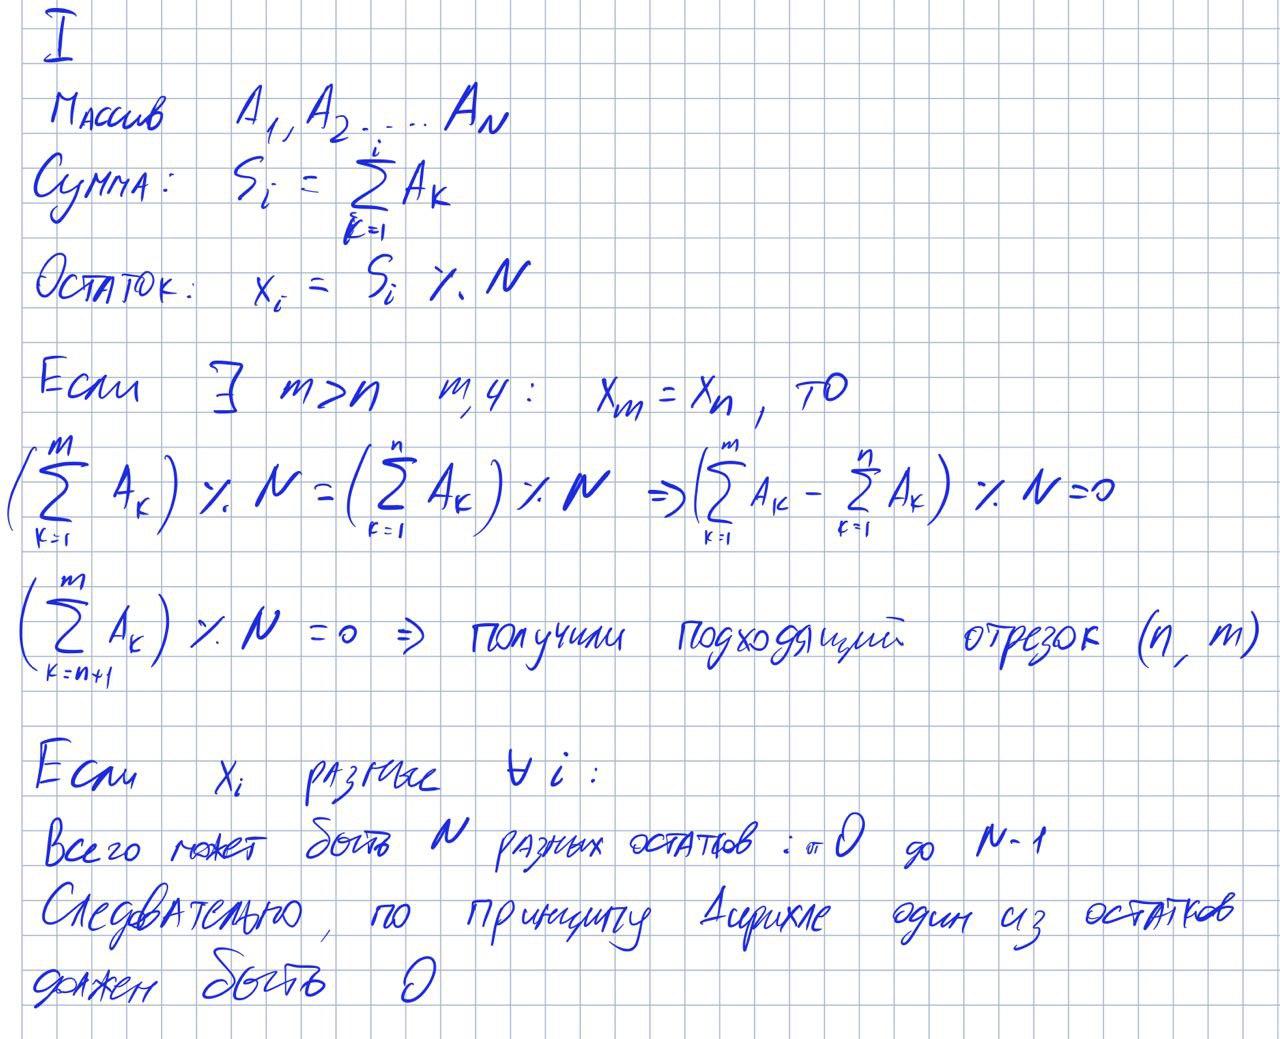 I
Массив A₁, A₂ ..... A_N
Сумма: S_i = \sum_{k=1}^{i} A_k
Остаток: x_i = S_i % N
Если ∃ m>n m,ч: x_m = x_n, то
(\sum_{k=1}^{m} A_k) % N = (\sum_{k=1}^{n} A_k) % N ⇒ (\sum_{k=1}^{m} A_k - \sum_{k=1}^{n} A_k) % N = 0
(\sum_{k=n+1}^{m} A_k) % N = 0 ⇒ получили подходящий отрезок (n, m)
Если x_i разные ∀ i:
Всего может быть N разных остатков: от 0 до N-1
Следовательно, по принципу Дирихле один из остатков
должен быть 0